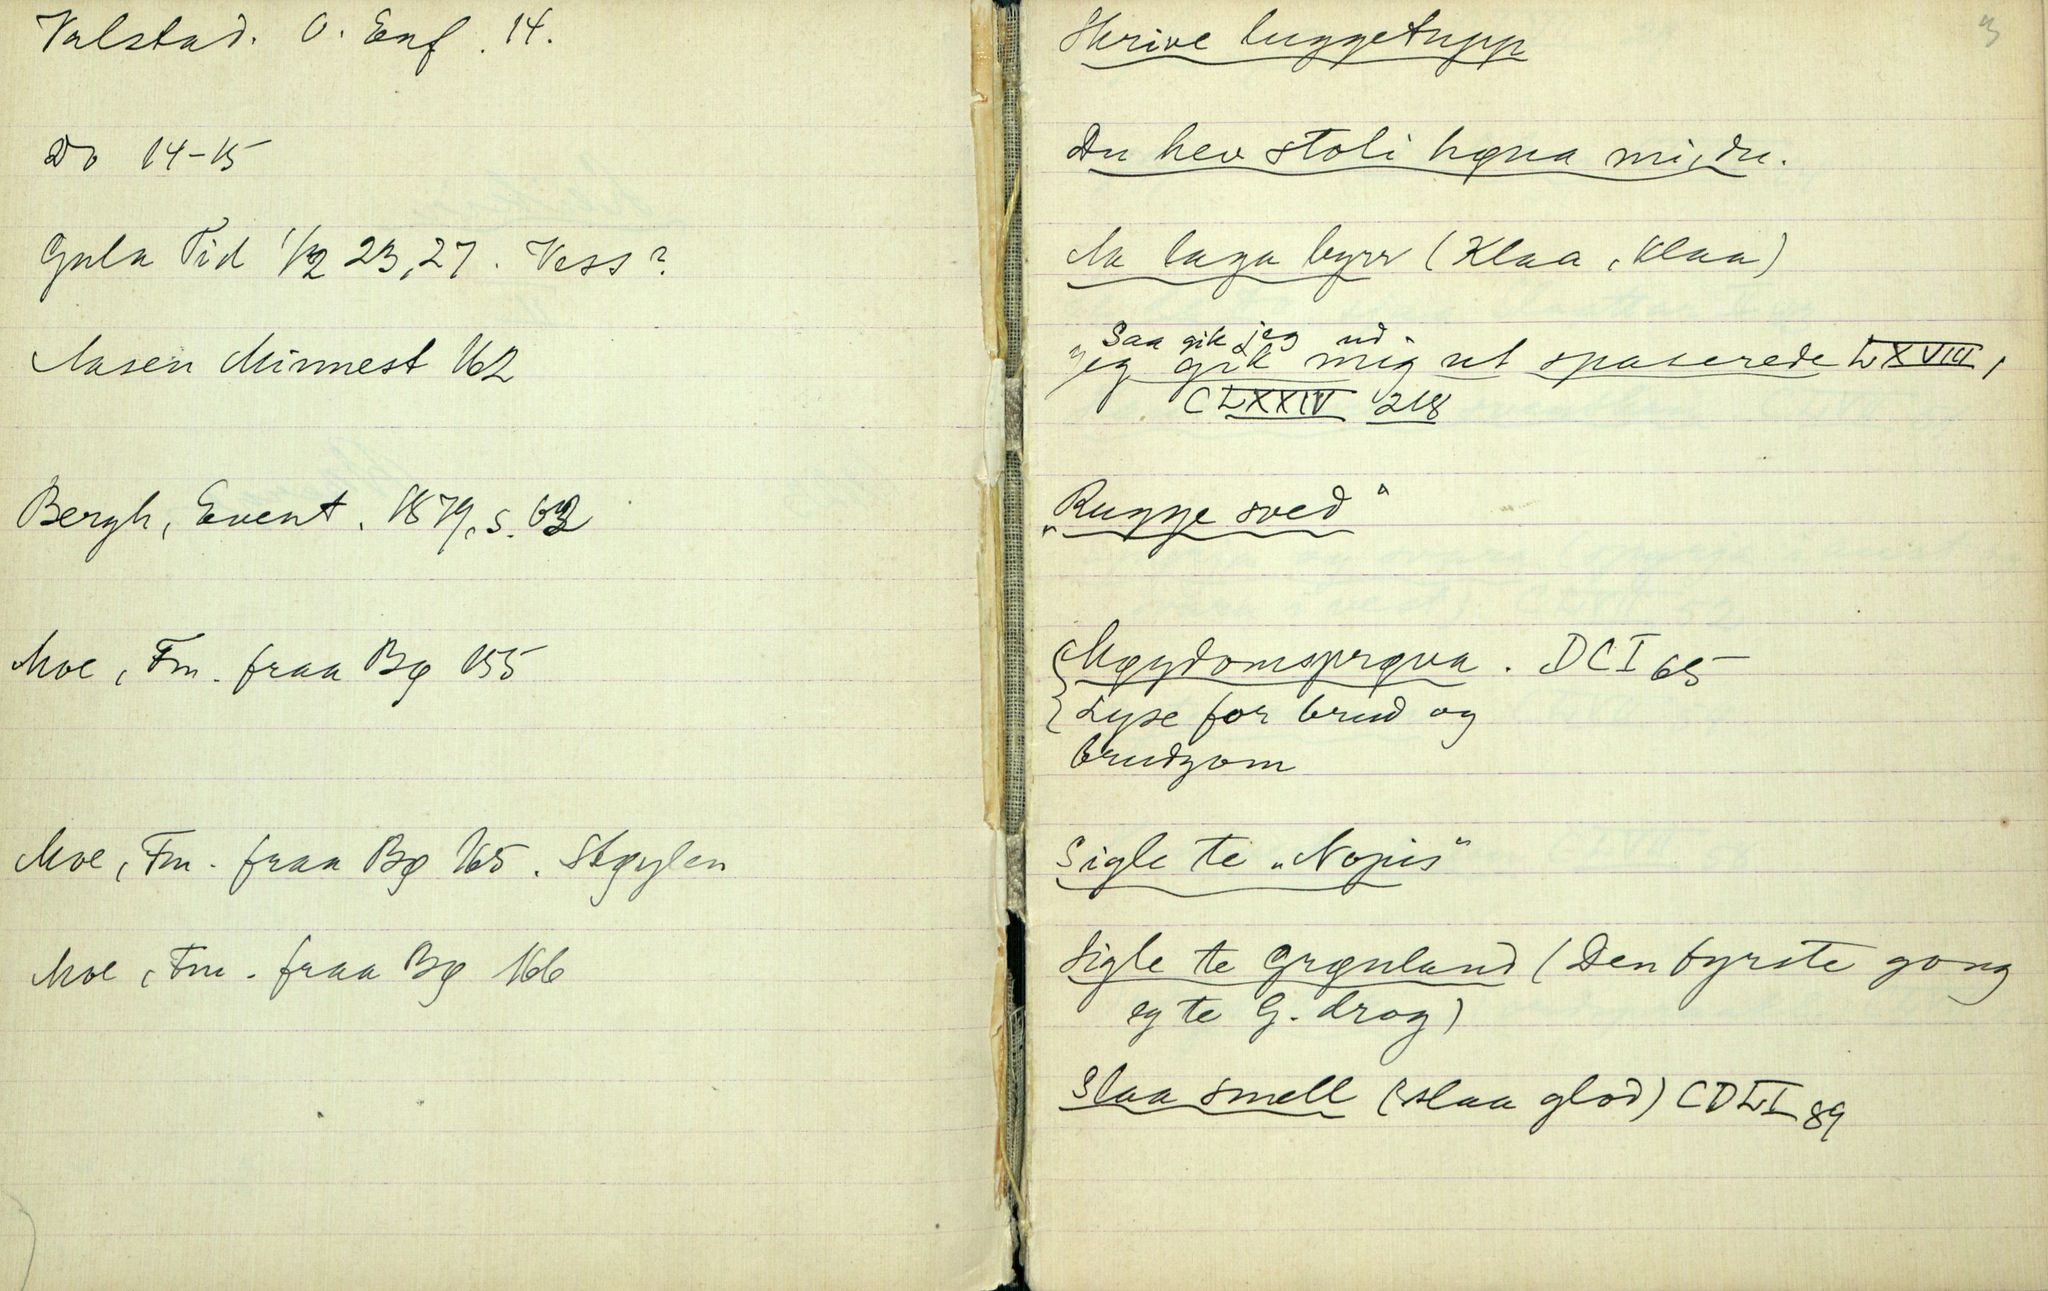 Valstad. O. Enf. 14.
Do 14-15
Gula Tid 1/12 23, 27. Voss?
Aasen Minnest 162
Bergh, Event. 1879, s. 63
Moe, Fm. fraa Bø 155
Moe, Fm. fraa Bø 165. Støylen
Moe, Fm. fraa Bø 166
3
Skrive luggetupp
Du hev stoli høna mi, du.
Aa laga byrr (Klaa, klaa)
Saa gik jeg ud
"Jeg gik mig ut spaserede LXVIII,
CLXXIV 218
"Rugge sved"
Møydomsprøva. DCI 65
Lyse for brud og
brudgom
Sigle te "Nopis"
Sigle te Grønland (Den fyrste gong
eg te G. drog)
Slaa smell (slaa glod) CDLI 89